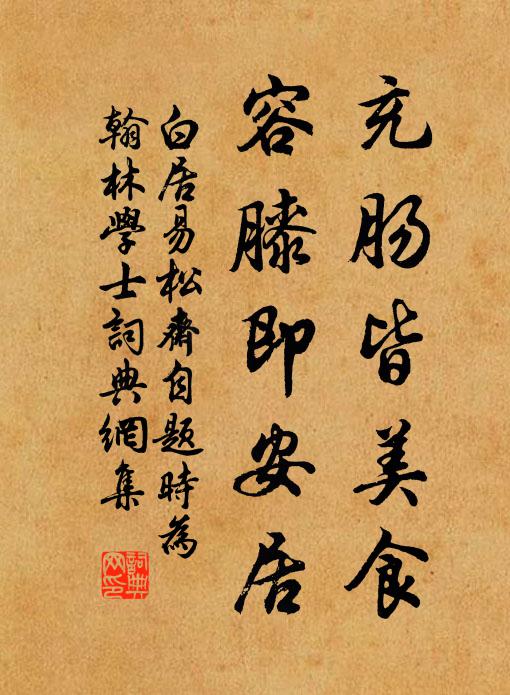 充肠皆美食
容膝即安居
白居易松齋自題時為
翰林學士詞典網集
詞典
网印